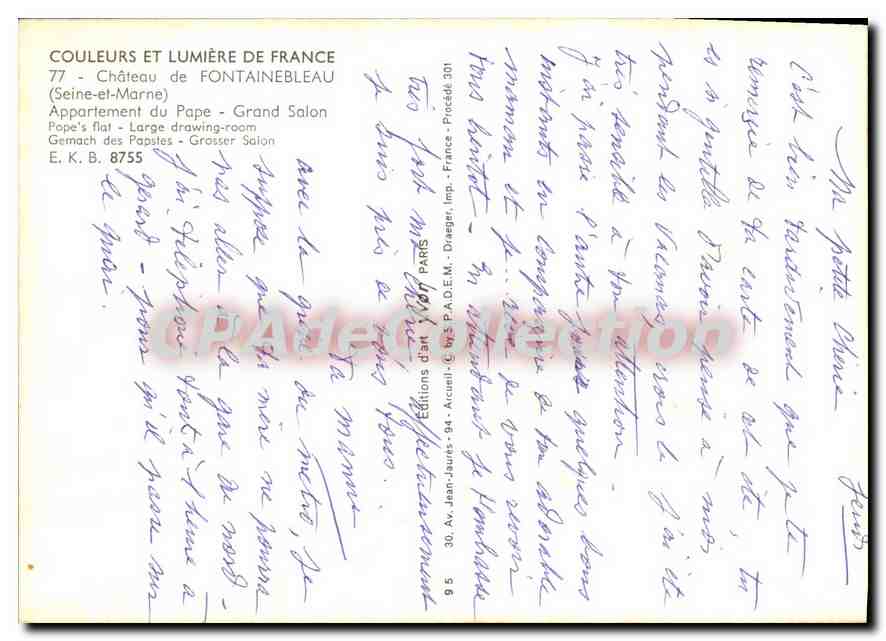 COULEURS ET LUMIÈRE DE FRANCE
77 - Château de FONTAINEBLEAU
(Seine-et-Marne)
Appartement du Pape - Grand Salon
Pope's flat - Large drawing-room
Gemach des Papstes - Grosser Salon
E. K. B. 8755
Editions d'art Yvon PARIS
9 5 30, Av. Jean-Jaurès - 94 - Arcueil - © by S.P.A.D.E.M. - Draeger, Imp. - France - Procédé 301
CPAdeCollection
Jeudi
Ma petite Chérie
C'est bien tardivement que je te
remercie de ta carte de cet été, tu
es si gentille d'avoir pensé à moi
pendant tes Vacances, crois le j'ai été
très sensible à ton attention -
J'ai passé l'autre jour quelques bons
instants en compagnie de ton adorable
maman et je de vous revoir
tous bientôt - En attendant je t'embrasse
très fort ma Chérie affectueusement
je suis près de vous tous.
Ta mamie
avec la grève du métro, je
suppose que ta mère ne pourra
pas aller à la gare du nord -
J'ai téléphoné tout à l'heure à
gérard - pour qu'il passe sur
le quai.